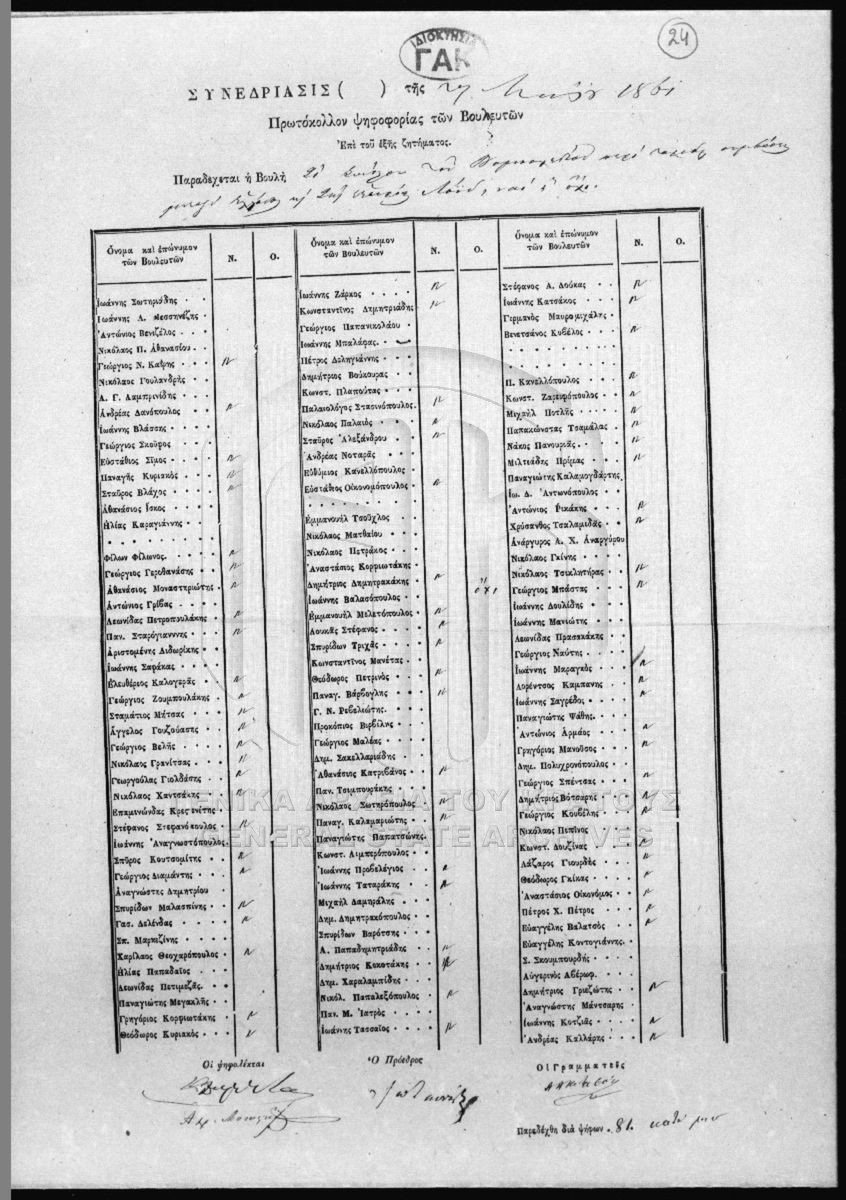 24
ΙΔΙΟΚΤΗΣΙΑ
ΓΑΚ
ΣΥΝΕΔΡΙΑΣΙΣ ( ) τῆς 27 Μαΐου 1861
Πρωτόκολλον ψηφοφορίας τῶν Βουλευτῶν
Ἐπὶ τοῦ ἑξῆς ζητήματος.
Παραδέχεται ἡ Βουλὴ
ναὶ ἢ ὄχι.
Ὄνομα καὶ ἐπώνυμον τῶν Βουλευτῶν Ν. Ο.
Ἰωάννης Σωτηριάδης
Ἰωάννης Α. Μεσσηνέζης
Ἀντώνιος Βενιζέλος
Νικόλαος Π. Ἀθανασίου
Γεώργιος Ν. Καΐρης ν
Νικόλαος Γουλανδρῆς
Α. Γ. Λαμπρινίδης
Ἀνδρέας Δανόπουλος ν
Ἰωάννης Βλάσσης
Γεώργιος Σκούφος
Εὐστάθιος Σῖμος ν
Παναγῆς Κυριακὸς ν
Σταῦρος Βλάχος ν
Ἀθανάσιος Ἴσκος
Ἠλίας Καραγιάννης
Φίλων Φίλωνος ν
Γεώργιος Γεροθανάσης ν
Ἀθανάσιος Μοναστηριώτης ν
Ἀντώνιος Γρίβας
Λεωνίδας Πετροπουλάκης ν
Παν. Σταρόγιαννης ν
Ἀριστομένης Διδωρίκης
Ἰωάννης Σαφάκας
Ἐλευθέριος Καλογερᾶς ν
Γεώργιος Ζουμπουλάκης ν
Σταμάτιος Μήτσας ν
Ἄγγελος Γουζούασης ν
Γεώργιος Βελῆς ν
Νικόλαος Γρανίτσας ν
Γεωργούλας Γιολδάσης ν
Νικόλαος Χαντσάκης ν
Ἐπαμινώνδας Κρεστενίτης
Στέφανος Στεφανόπουλος ν
Ἰωάννης Ἀναγνωστόπουλος
Σπῦρος Κουτσομίτης ν
Γεώργιος Διαμάντης ν
Ἀναγνώστης Δημητρίου
Σπυρίδων Μαλασπίνης ν
Γασ. Δελένδας ν
Σπ. Μαρκεζίνης
Χαρίλαος Θεοχαρόπουλος ν
Ἠλίας Παπαδαῖος
Λεωνίδας Πετιμεζᾶς
Παναγιώτης Μεγακλῆς
Γρηγόριος Κορφιωτάκης ν
Θεόδωρος Κυριακὸς ν
Ὄνομα καὶ ἐπώνυμον τῶν Βουλευτῶν Ν. Ο.
Ἰωάννης Ζάρκος ν
Κωνσταντῖνος Δημητριάδης ν
Γεώργιος Παπανικολάου
Ἰωάννης Μπαλάφας
Πέτρος Δεληγιάννης
Δημήτριος Βούκουρας
Κωνστ. Πλαπούτας
Παλαιολόγος Στασινόπουλος ν
Νικόλαος Παλαιὸς ν
Σταῦρος Ἀλεξάνδρου ν
Ἀνδρέας Νοταρᾶς
Εὐθύμιος Κανελλόπουλος
Εὐστάθιος Οἰκονομόπουλος ν
Ἐμμανουὴλ Τσοῦχλος
Νικόλαος Ματθαίου
Νικόλαος Πετράκος
Ἀναστάσιος Κορφιωτάκης
Δημήτριος Δημητρακάκης ν
Ἰωάννης Βαλασόπουλος ὄχι
Ἐμμανουὴλ Μελετόπουλος ν
Λουκᾶς Στέφανος ν
Σπυρίδων Τριχᾶς ν
Κωνσταντῖνος Μανέτας
Θεόδωρος Πετρινὸς ν
Παναγ. Βάρβογλης ν
Γ. Ν. Ρεβελιώτης
Προκόπιος Βιρβίλης
Γεώργιος Μαλέας
Δημ. Σακελλαριάδης
Ἀθανάσιος Κατριβάνος ν
Παν. Τσιμπουράκης
Νικόλαος Σωτηρόπουλος ν
Παναγ. Καλαμαριώτης ν
Παναγιώτης Παπατσώνης
Κωνστ. Λιμπερόπουλος
Ἰωάννης Προβελέγιος ν
Ἰωάννης Ταταράκης ν
Μιχαὴλ Δαμηράλης
Δημ. Δημητρακόπουλος
Σπυρίδων Βαρότσης
Α. Παπαδημητριάδης ν
Δημήτριος Κοκοτάκης ν
Δημ. Χαραλαμπίδης
Νικόλ. Παπαλεξόπουλος ν
Παν. Μ. Ἰατρὸς
Ἰωάννης Τασσαῖος ν
Ὄνομα καὶ ἐπώνυμον τῶν Βουλευτῶν Ν. Ο.
Στέφανος Α. Δούκας ν
Ἰωάννης Κατσάκος ν
Γερμανὸς Μαυρομιχάλης
Βενετσάνος Κυβέλος ν
Π. Κανελλόπουλος ν
Κωνστ. Ζαρειφόπουλος ν
Μιχαὴλ Ποτλῆς ν
Παπακώνστας Τσαμάλας ν
Νάκος Πανουριᾶς ν
Μιλτιάδης Πρίμας ν
Παναγιώτης Καλαμογδάρτης
Ἰω. Δ. Ἀντωνόπουλος
Ἀντώνιος Ῥικάκης ν
Χρύσανθος Τσαλαμιδᾶς ν
Ἀνάργυρος Α. Χ. Ἀναργύρου
Νικόλαος Γκίνης
Νικόλαος Τσικλητήρας ν
Γεώργιος Μπάστας ν
Ἰωάννης Δουλίδης
Ἰωάννης Μανιώτης
Λεωνίδας Πρασακάκης
Γεώργιος Ναύτης
Ἰωάννης Μαραγκὸς ν
Λορέντσος Καμπάνης ν
Ἰωάννης Σαγρέδος ν
Παναγιώτης Ψάθης
Ἀντώνιος Ἀρμάος ν
Γρηγόριος Μανοῦσος ν
Δημ. Πολυχρονόπουλος
Γεώργιος Σπέντσας
Δημήτριος Βότσαρης ν
Γεώργιος Κουβέλης ν
Νικόλαος Πιπῖνος
Κωνστ. Δουζίνας ν
Λάζαρος Γιουρδῆς ν
Θεόδωρος Γκίκας ν
Ἀναστάσιος Οἰκονόμος ν
Πέτρος Χ. Πέτρος ν
Εὐαγγέλης Βαλατσὸς ν
Εὐαγγέλης Κοντογιάννης
Σ. Σκουμπουρδῆς
Αὐγερινὸς Ἀβέρωφ
Δημήτριος Γριεζώτης ν
Ἀναγνώστης Μάντσαρης
Ἰωάννης Κοτζιᾶς ν
Ἀνδρέας Καλλάρης ν
ΓΕΝΙΚΑ ΑΡΧΕΙΑ ΤΟΥ ΚΡΑΤΟΥΣ
GENERAL STATE ARCHIVES
Οἱ ψηφολέκται Ὁ Πρόεδρος Οἱ Γραμματεῖς
Παρεδέχθη διὰ ψήφων 81.